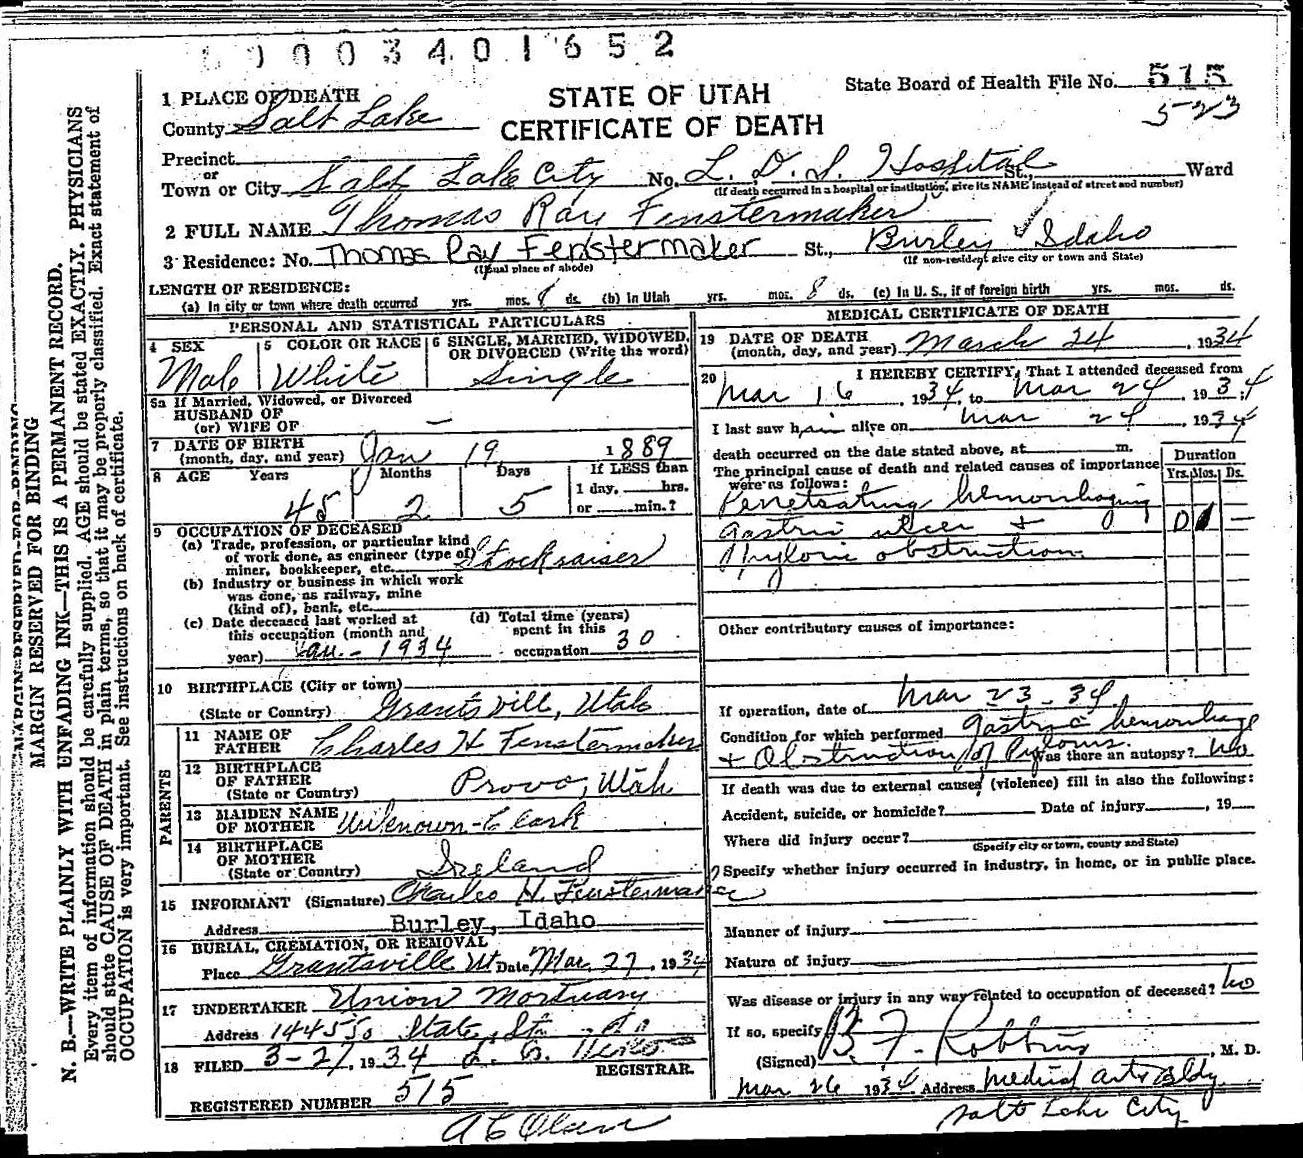 0003401652
State Board of Health File No. 515
5-23
STATE OF UTAH
CERTIFICATE OF DEATH
1 PLACE OF DEATH
County Salt Lake
Precinct
or
Town or City Salt Lake City No. L. D. S. Hospital St., Ward
(If death occurred in a hospital or institution, give its NAME instead of street and number)
2 FULL NAME Thomas Ray Fenstermaker
3 Residence: No. Thomas Ray Fenstermaker St., Burley Idaho
(Usual place of abode) (If non-resident give city or town and State)
LENGTH OF RESIDENCE:
(a) In city or town where death occurred yrs. mos. 8 ds. (b) In Utah yrs. mos. 8 ds. (c) In U. S., if of foreign birth yrs. mos. ds.
PERSONAL AND STATISTICAL PARTICULARS
4 SEX
Male
5 COLOR OR RACE
White
6 SINGLE, MARRIED, WIDOWED,
OR DIVORCED (Write the word)
Single
5a If Married, Widowed, or Divorced
HUSBAND OF
(or) WIFE OF —
7 DATE OF BIRTH
(month, day, and year) Jan 19 1889
8 AGE Years Months Days If LESS than
1 day, hrs.
45 2 5 or min.?
9 OCCUPATION OF DECEASED
(a) Trade, profession, or particular kind
of work done, as engineer (type of)
miner, bookkeeper, etc. Stockraiser
(b) Industry or business in which work
was done, as railway, mine
(kind of), bank, etc.
(c) Date deceased last worked at
this occupation (month and
year) Jan - 1934
(d) Total time (years)
spent in this
occupation 30
10 BIRTHPLACE (City or town)
(State or Country) Grantsvill, Utah
PARENTS
11 NAME OF
FATHER Charles H Fenstermaker
12 BIRTHPLACE
OF FATHER
(State or Country) Provo, Utah
13 MAIDEN NAME
OF MOTHER Unknown-Clark
14 BIRTHPLACE
OF MOTHER
(State or Country) Ireland
15 INFORMANT (Signature) Charles H. Fenstermaker
Address Burley, Idaho
16 BURIAL, CREMATION, OR REMOVAL
Place Grantsville Ut Date Mar. 27, 1934
17 UNDERTAKER Union Mortuary
Address 1445 So State St.
18 FILED 3-27, 1934
REGISTRAR.
REGISTERED NUMBER 515
A E Olsen
MEDICAL CERTIFICATE OF DEATH
19 DATE OF DEATH
(month, day, and year) March 24, 1934
20 I HEREBY CERTIFY, That I attended deceased from
Mar 16, 1934, to Mar 24, 1934
I last saw him alive on Mar 24, 1934
death occurred on the date stated above, at m.
The principal cause of death and related causes of importance
were as follows:
Duration
Yrs. Mos. Ds.
Penetrating hemorrhaging
gastric ulcer +
Pyloric obstruction
Other contributory causes of importance:
If operation, date of Mar 23-34.
Condition for which performed gastric hemorrhage
+ Obstruction of Pylorus. Was there an autopsy? No
If death was due to external causes (violence) fill in also the following:
Accident, suicide, or homicide? Date of injury, 19
Where did injury occur?
(Specify city or town, county and State)
Specify whether injury occurred in industry, in home, or in public place.
Manner of injury
Nature of injury
Was disease or injury in any way related to occupation of deceased? No
If so, specify
(Signed) B. F. Robbins, M. D.
Mar 26 1934 Address Medical Arts Bldg.
Salt Lake City
MARGIN RESERVED FOR BINDING
MARGIN RESERVED FOR BINDING
N. B.—WRITE PLAINLY WITH UNFADING INK—THIS IS A PERMANENT RECORD.
Every item of information should be carefully supplied. AGE should be stated EXACTLY. PHYSICIANS
should state CAUSE OF DEATH in plain terms, so that it may be properly classified. Exact statement of
OCCUPATION is very important. See instructions on back of certificate.